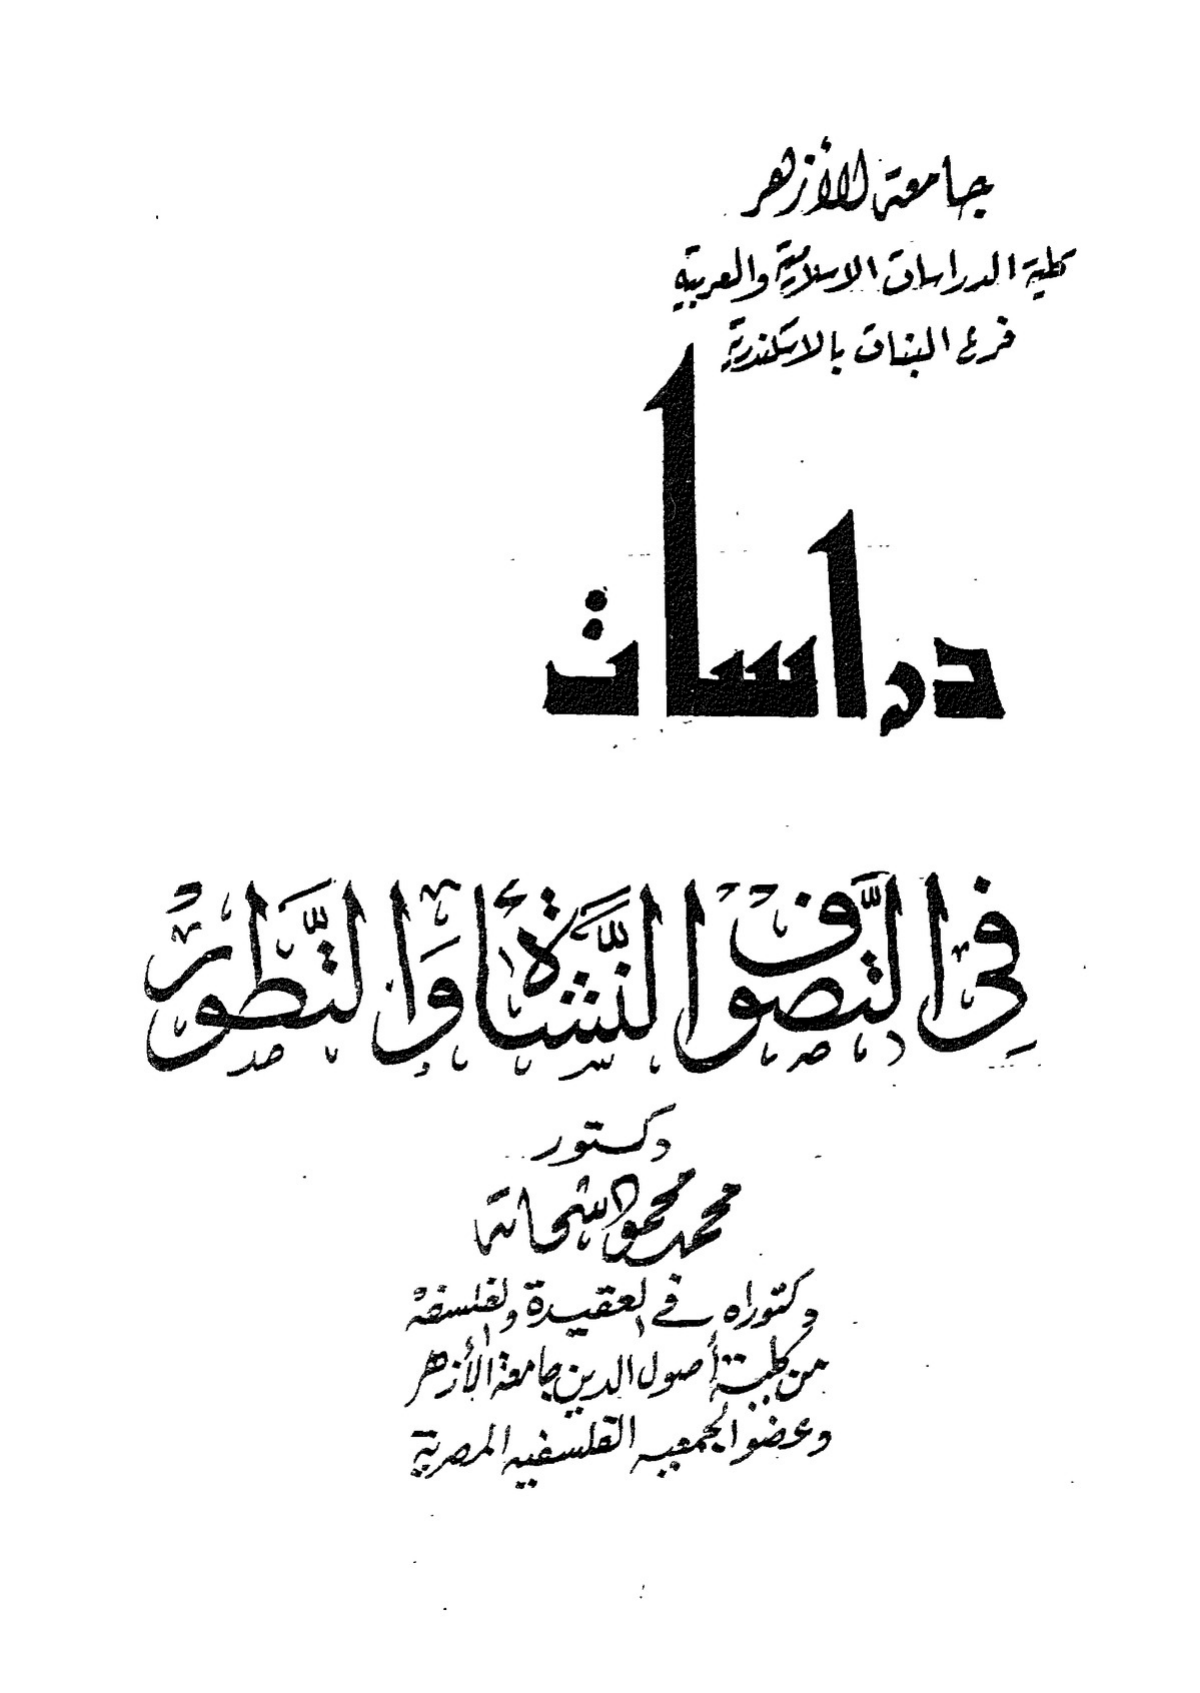 جامعة الأزهر
كلية الدراسات الاسلامية والعربية
فرع البنات بالاسكندرية
دراسات
فِى التَّصوف النَّشأة وَالتَّطور
دكتور
محمد محمود شحاتة
دكتوراه فى العقيدة والفلسفة
من كلية أصول الدين جامعة الأزهر
وعضو الجمعيه الفلسفيه المصرية